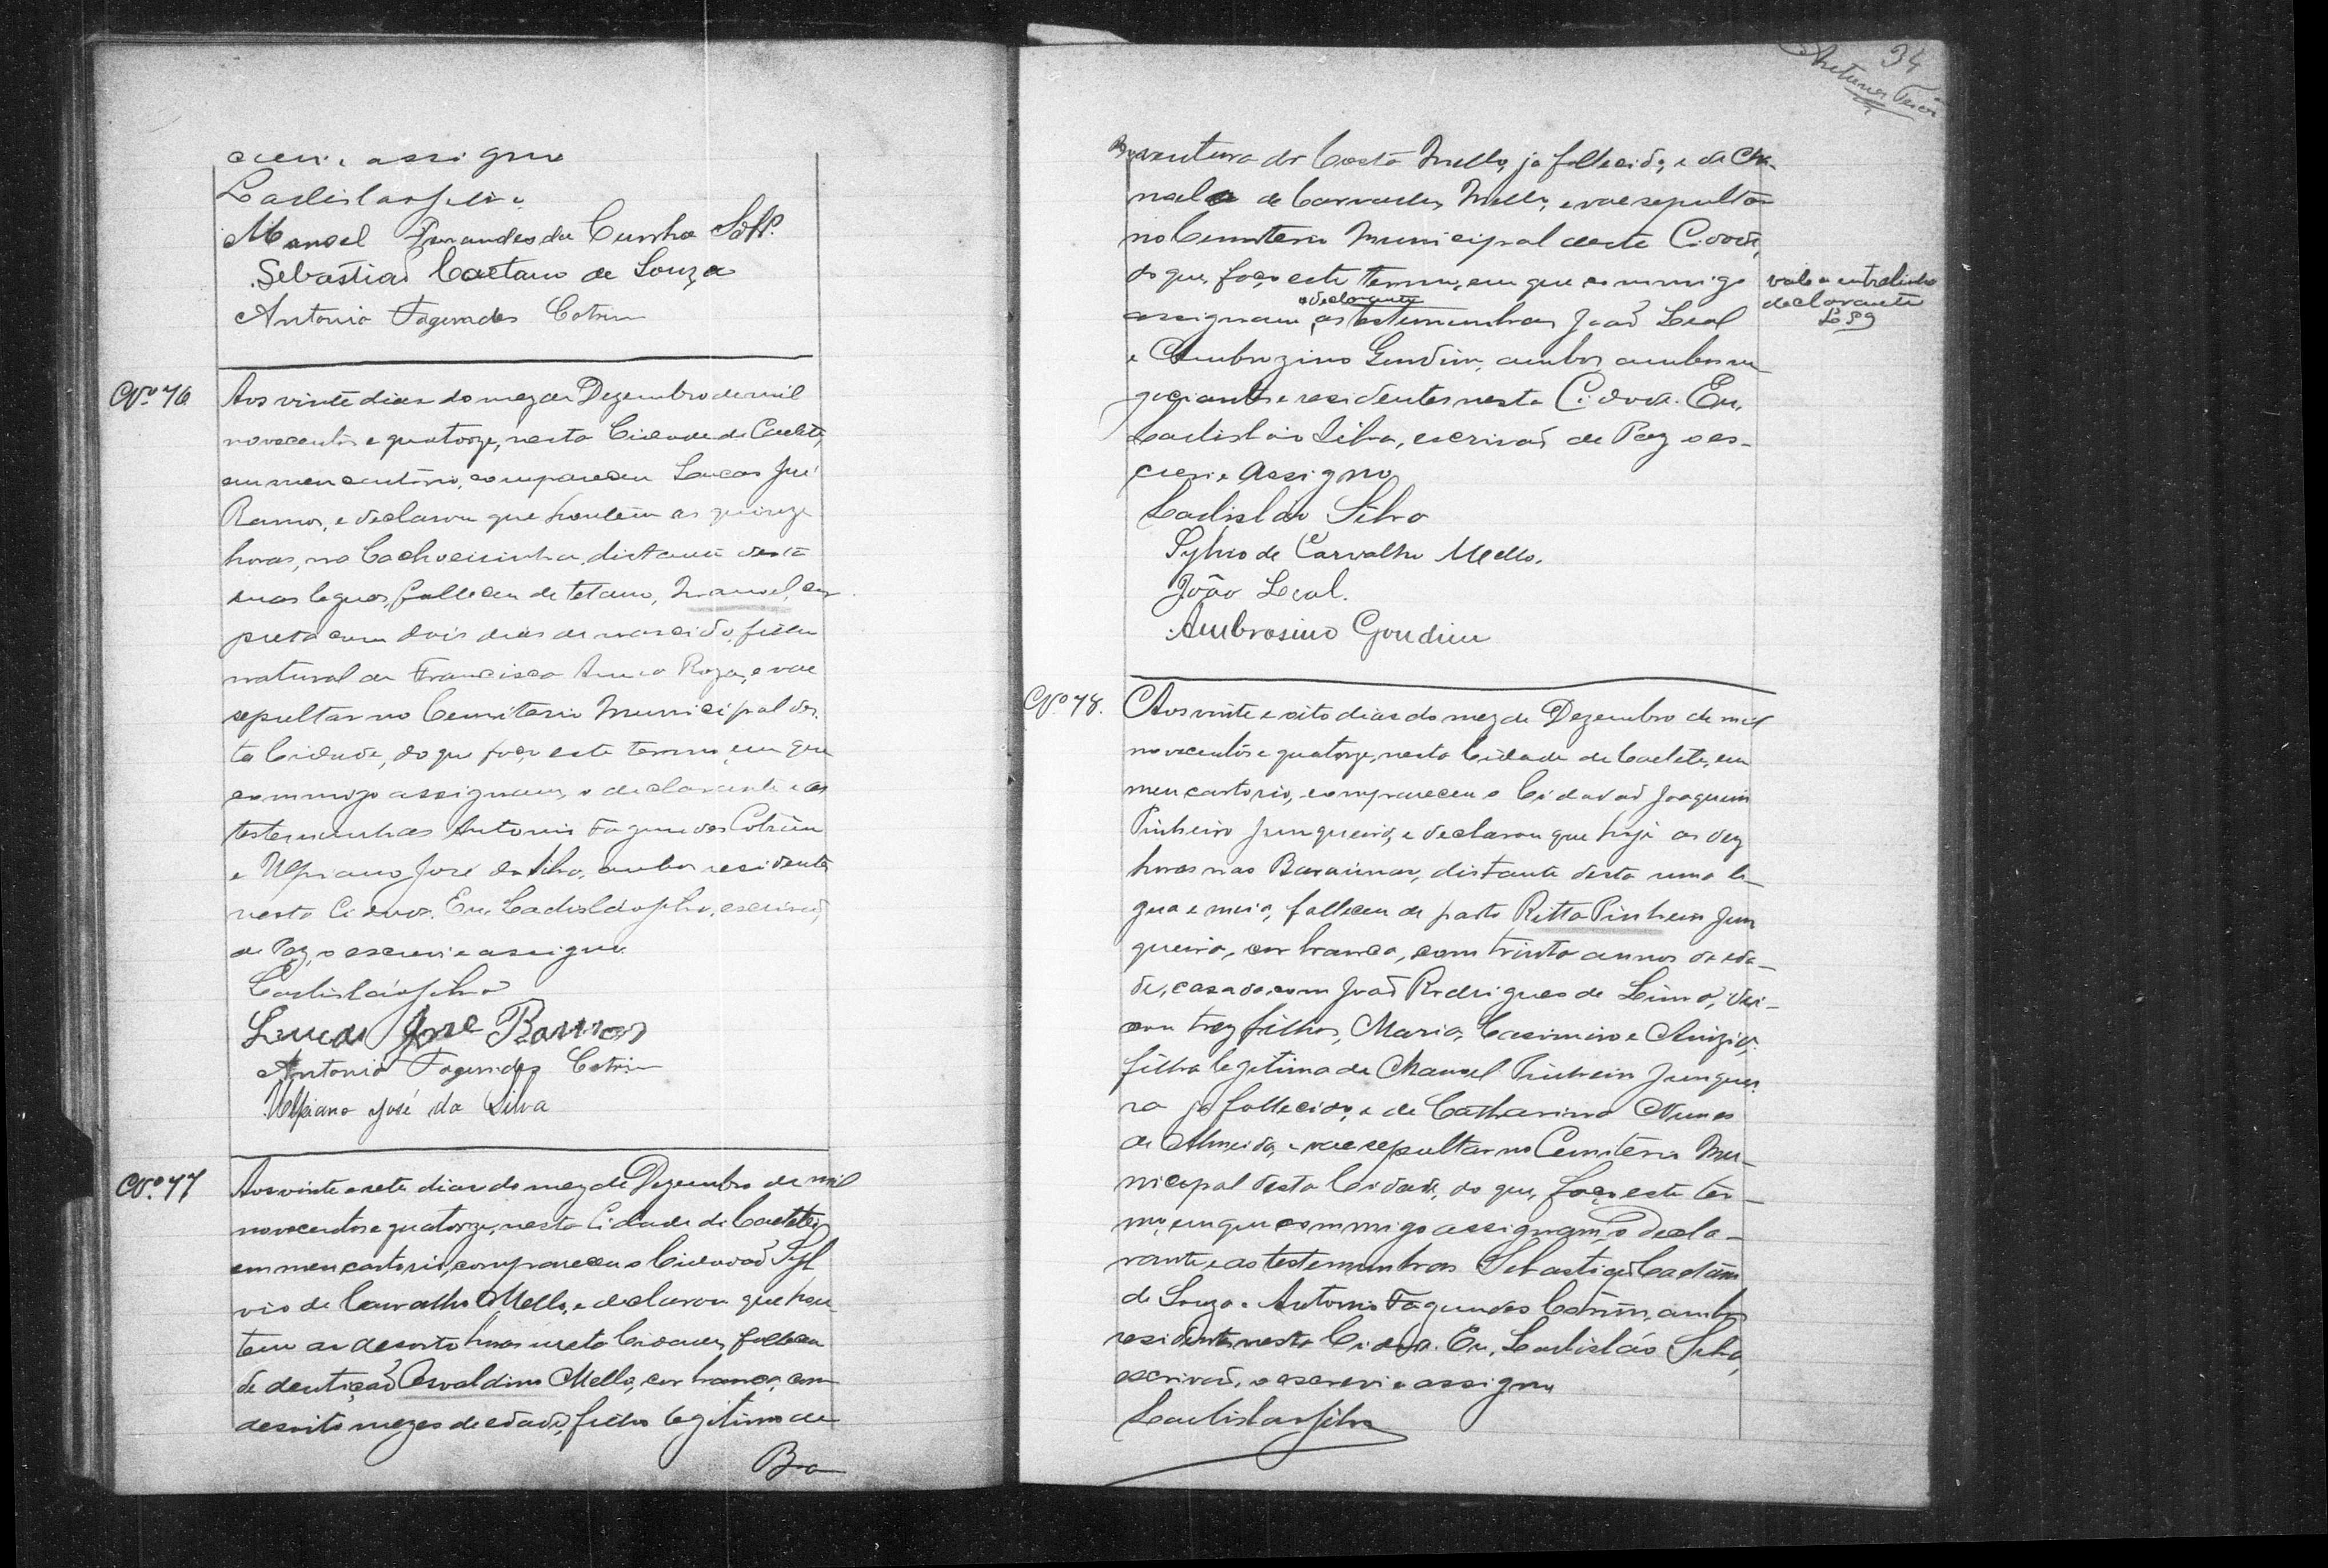 crevi e assigno
Ladislao Silva
Manoel Fernandes da Cunha
Sebastião Caetano de Souza
Antonio Fagundes Cotrim
Nº 76
Aos vinte dias do mez de Dezembro de mil
novecentos e quatorze, nesta Cidade de Caeteté,
em meu cartorio, compareceu Lucas José
Ramos, e declarou que hontem as quinze
horas, na Cachoeirinha, distante desta
duas leguas, falleceu de tetano, Manoel, cor
preta com dois dias de nascido, filho
natural de Francisca Roza, e vae
sepultar no Cemiterio Municipal des-
ta Cidade, do que faço este termo, em que
commigo assignam, o declarante e as
testemunhas Antonio Fagundes Cotrim
e Ulpiano José da Silva, ambos residentes
nesta Cidade. Eu, Ladisláo Silva, escrivão
de Paz, o escrevi e assigno
Ladisláo Silva
Lucas José Ramos
Antonio Fagundes Cotrim
Ulpiano José da Silva
Nº 77
Aos vinte e sete dias do mez de Dezembro de mil
novecentos e quatorze, nesta Cidade de Caeteté,
em meu cartorio, compareceu o Cidadão Syl
vio de Carvalho Mello, e declarou que hon
tem as desoito horas nesta Cidade, falleceu
de dentição Osvaldino Mello, cor branca, com
desoito mezes de edade, filho legitimo de
Boa
34
Boaventura da Costa Mello, já fallecido, e de
de Carvalho Mello, e vae sepultar
no Cemiterio Municipal desta Cidade,
do que, faço este termo, em que commigo
assignam, o declarante as testemunhas João Leal
e Ambrozino Gondim, ambos ambos ne
gociantes e residentes nesta Cidade. Eu,
Ladisláo Silva, escrivão de Paz o es-
crevi e assigno
vale a entrelinha
declarante
Ladisláo Silva
Sylvio de Carvalho Mello.
João Leal.
Ambrosino Gondim
Nº 78.
Aos vinte e oito dias do mez de Dezembro de mil
novecentos e quatorze, nesta Cidade de Caeteté, em
meu cartorio, compareceu o Cidadão Joaquim
Pinheiro Junqueira, e declarou que hoje as dez
horas nas Baraúnas, distante desta uma le-
gua e meia, falleceu de parto Ritta Pinheiro Jun
queira, cor branca, com trinta annos de eda-
de, casada com João Rodrigues de Lima, dei-
xou trez filhos, Maria, Casimiro e
filha legitima de Manoel Pinheiro Junquei
ra já fallecido, e de Catharina Nunes
de Almeida, e vae sepultar no Cemiterio Mu-
nicipal desta Cidade, do que, faço este ter-
mo, em que commigo assignam, o decla-
rante, e as testemunhas Sebastião Caetano
de Souza e Antonio Fagundes Cotrim, ambos
residentes nesta Cidade. Eu, Ladisláo Silva,
escrivão, o escrevi e assigno
Ladislao Silva